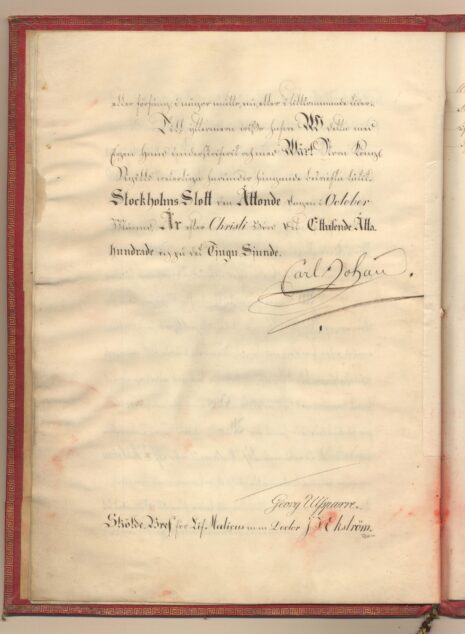 eller förfång i någor måtto, nu, eller i tillkommande tider.
Till yttermera visso hafve Wi detta med
Egen Hand underskrifvit och med Wårt Stora Kongl.
Sigill hängande bekräfta låtit.
Stockholms Slott den Åttonde dagen i October
Månad, År efter Christi Börd det Ettusende Åtta
hundrade och på det Tjugu Sjunde.
Carl Johan.
Georg Ulfsparre.
Skölde Bref för Lif-Medicus m.m. Doctor J. Ekström.